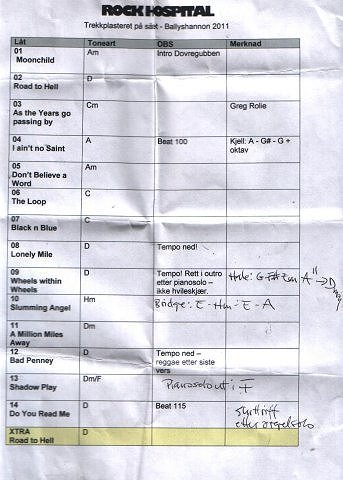 ROCK HOSPITAL
Trekkplasteret på sårt - Ballyshannon 2011
Låt Toneart OBS Merknad
01 Am Intro Dovregubben
Moonchild
02 D
Road to Hell
03 Cm Greg Rolie
As the Years go
passing by
04 A Beat 100 Kjell: A - G# - G +
I ain't no Saint oktav
05 Am
Don't Believe a
Word
06 C
The Loop
07 C
Black n Blue
08 D Tempo ned!
Lonely Mile
09 D Tempo! Rett i outro
Wheels within etter pianosolo –
Wheels ikke hvileskjær.
10 Hm Bridge: E - Hm - E - A
Slumming Angel
11 Dm
A Million Miles
Away
12 D Tempo ned –
Bad Penney reggae etter siste
vers
13 Dm/F Pianosolo ut i F
Shadow Play
14 D Beat 115
Do You Read Me etter orgelsolo
XTRA D
Road to Hell